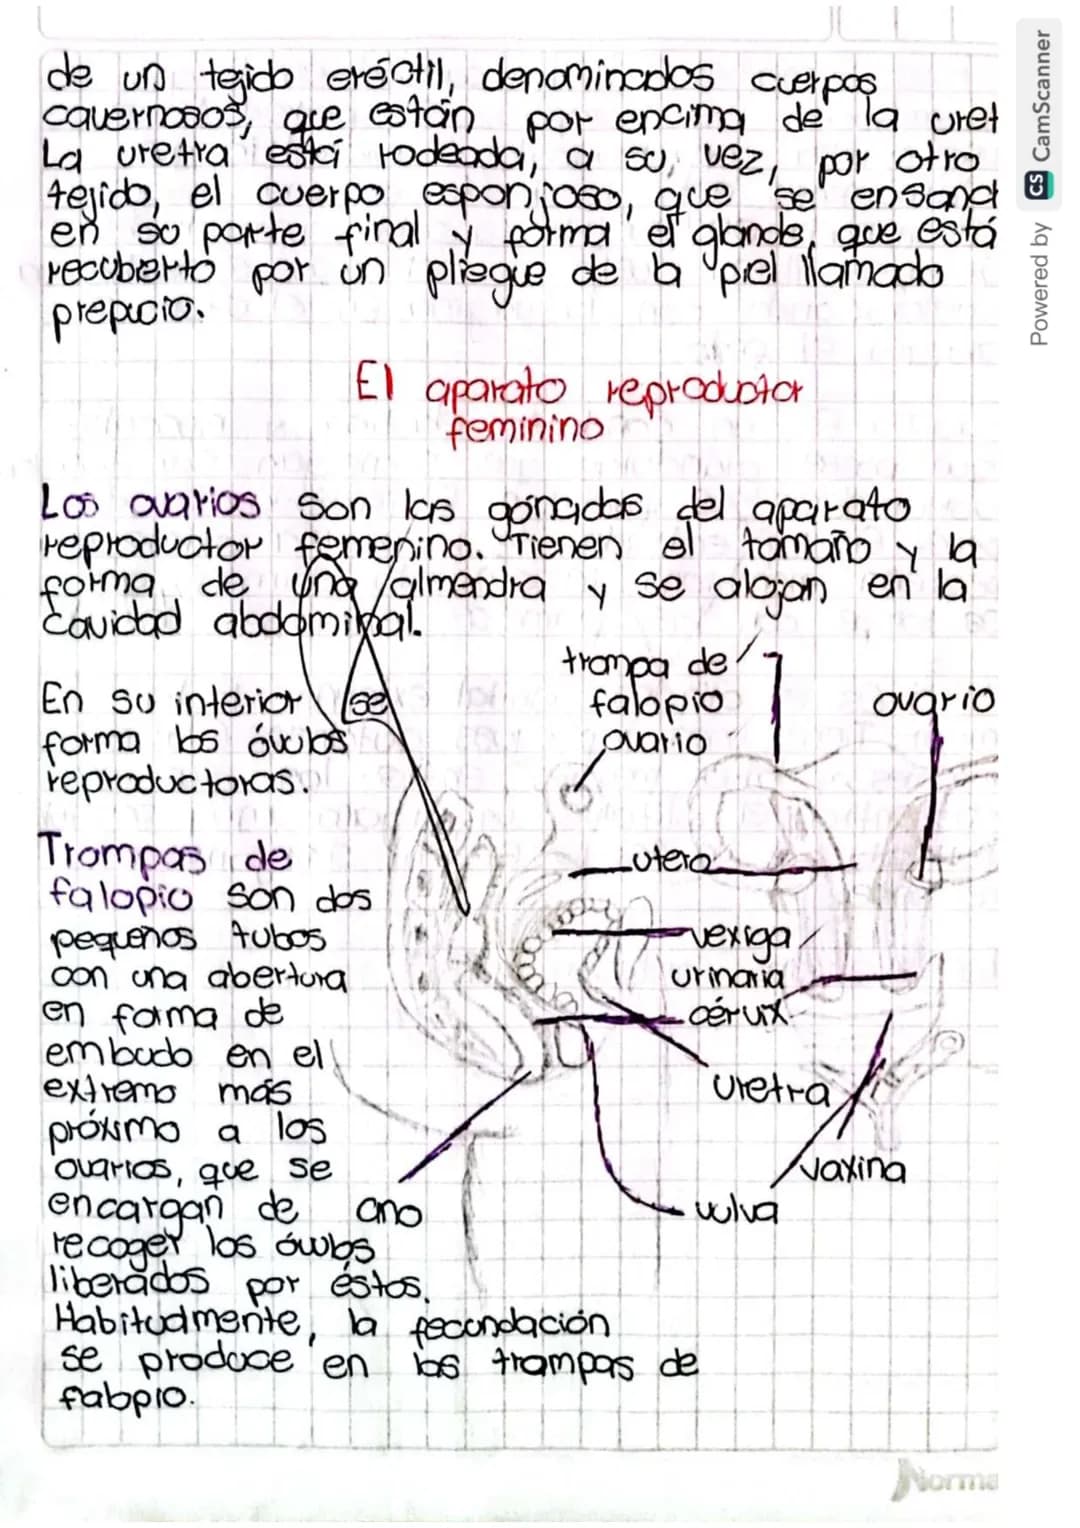 de un tejido eréctil, denominados cuerpos
cavernosos, que están por encima de la uret
La uretra está rodeada, a su, vez, por otro
tejido, el cuerpo esponjoso, que se ensanch
en su parte final y forma el glande, que está
recubierto por un pliegue de la piel llamado
prepucio.
El aparato reproductor
feminino
Los ovarios son las gónadas del aparato
reproductor femenino. Tienen el tamaño y la
forma de una almendra y se alojan en la
cavidad abdominal.
En su interior se
forma los óvulos
reproductoras.
Trompas de
falopio son dos
pequeños tubos
con una abertura
en forma de
embudo en el
extremo más
próximo a los
ovarios, que se
encargan de
recoger los óvulos
liberados por éstos.
Habitudmente, la fecundación
se produce en las trompas de
falopio.
trompa de
falopio
ovario
ovario
utero
vexiga
urinaria
cérvix
uretra
vaxina
vulva
ano
Norma
Powered by CS CamScanner